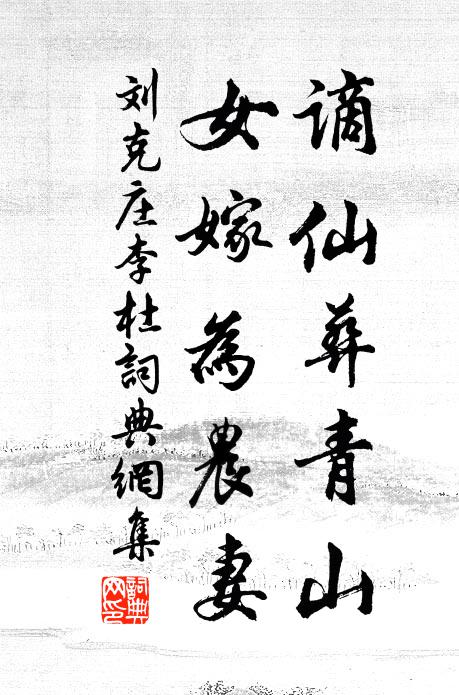 谪仙葬青山
女嫁為農妻
刘克庄李杜詞典網集
詞典
网印